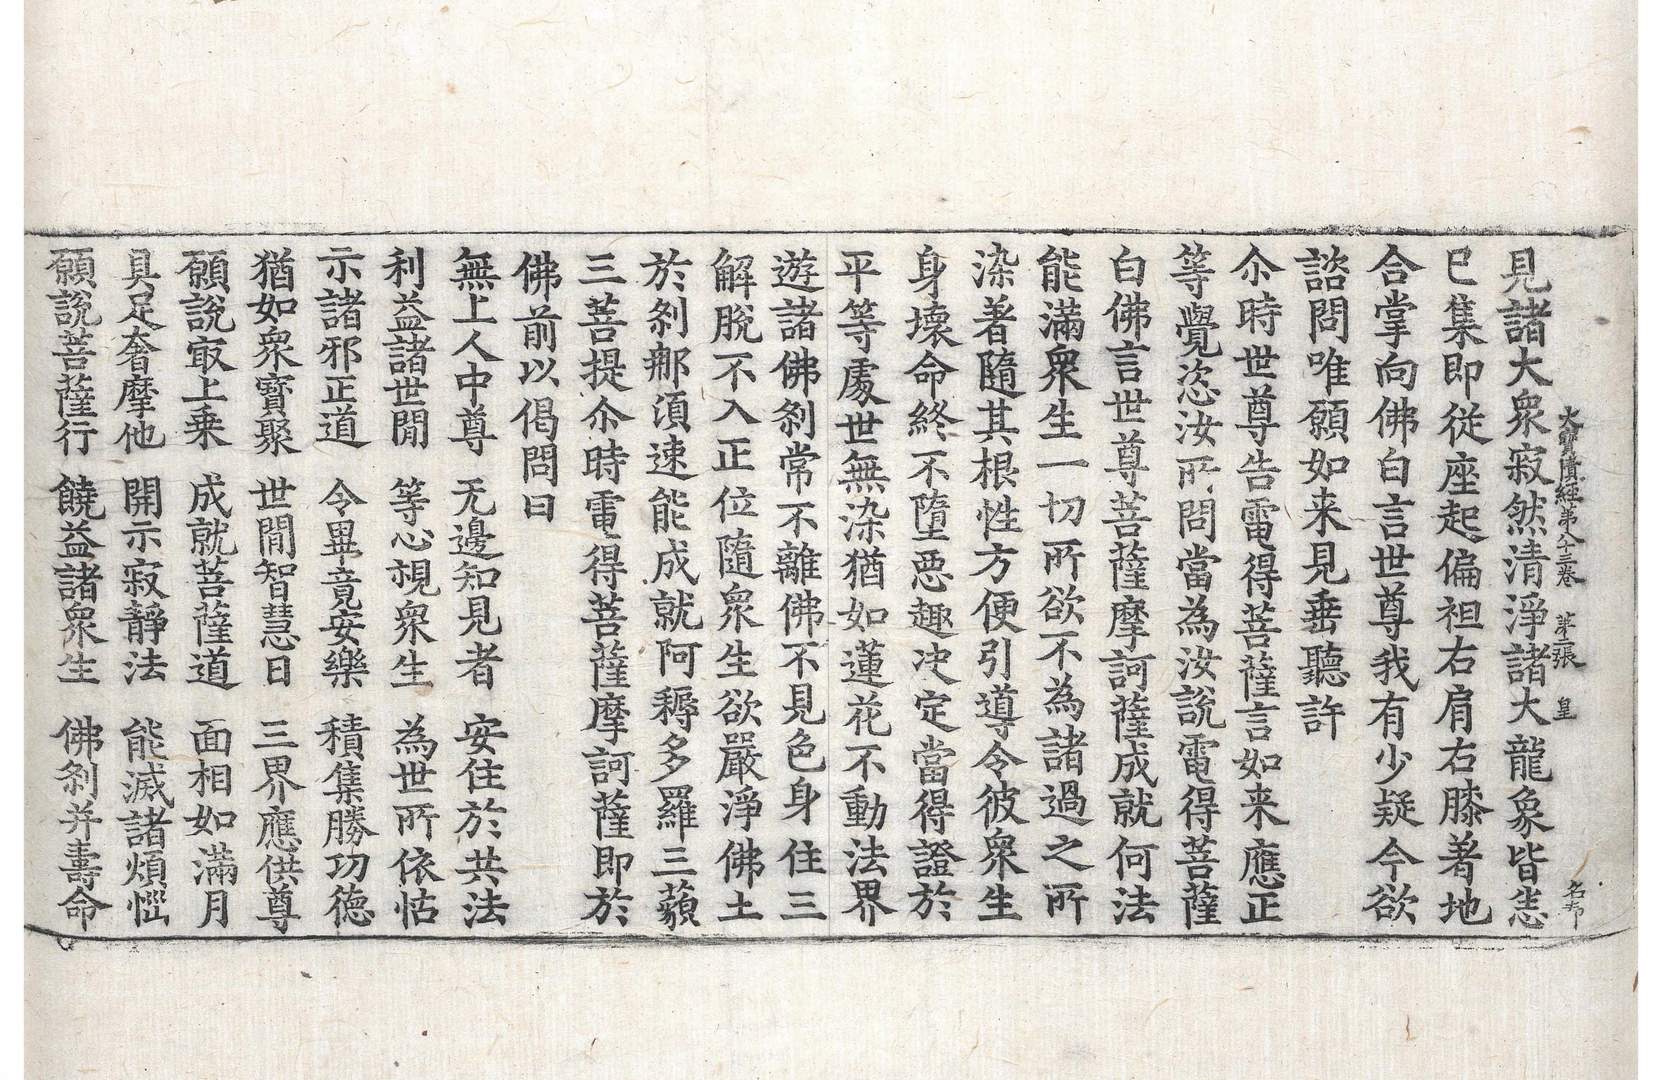 大寶積經第八十三卷 第二張 皇 名布
見諸大衆寂然清淨諸大龍象皆悉
已集即從座起偏袒右肩右膝著地
合掌向佛白言世尊我有少疑今欲
諮問唯願如来見垂聽許
尒時世尊告電得菩薩言如来應正
等覺恣汝所問當為汝說電得菩薩
白佛言世尊菩薩摩訶薩成就何法
能滿衆生一切所欲不為諸過之所
染著隨其根性方便引導令彼衆生
身壞命終不墮惡趣决定當得證於
平等處世無染猶如蓮花不動法界
遊諸佛刹常不離佛不見色身住三
解脫不入正位隨衆生欲嚴淨佛土
於刹那須速能成就阿耨多羅三藐
三菩提尒時電得菩薩摩訶薩即於
佛前以偈問曰
無上人中尊 无邊知見者 安住於共法
利益諸世閒 等心視衆生 為世所依怙
示諸邪正道 令畢竟安樂 積集勝功德
猶如衆寶聚 世閒智慧日 三界應供尊
願說冣上乗 成就菩薩道 面相如滿月
具足奢摩他 開示寂靜法 能滅諸煩惱
願說菩薩行 饒益諸衆生 佛刹并壽命